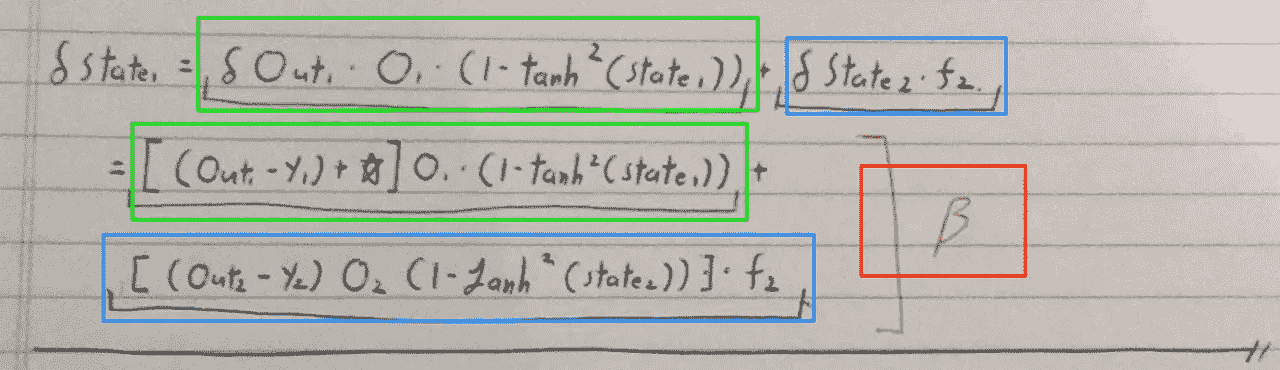 δ state₁ = δ Out₁ · O₁ · (1 - tanh²(state₁)) + δ State₂ · f₂.
= [(Out₁ - Y₁) + ☆] O₁ · (1 - tanh²(state₁)) +
[(Out₂ - Y₂) O₂ (1 - tanh²(state₂))] · f₂
β